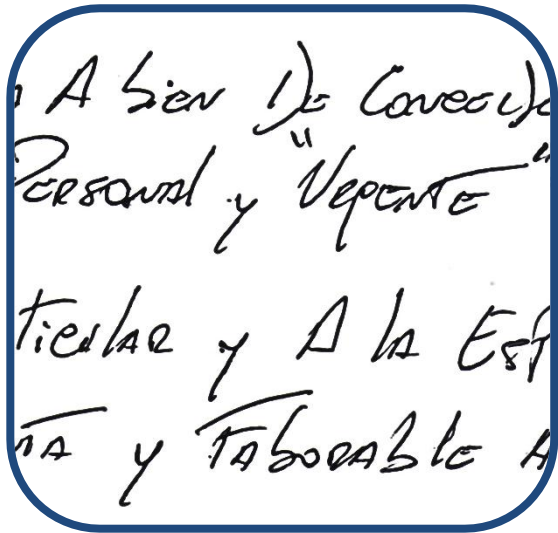 A bien De Conced
Personal y "Urgente"
ticular y A la Esp
TA y Faborable A